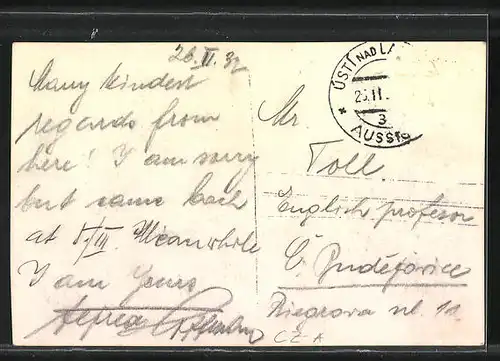 26.II.32
Many kindest
regards from
here! I am sorry
but came back
at 1/III. Meanwhile
I am Yours
Mr.
Toll.
English profesor
Č. Budějovice
Riegrova ul. 11
CZ-A
ÚSTÍ NAD
26.II.
3
AUSSIG